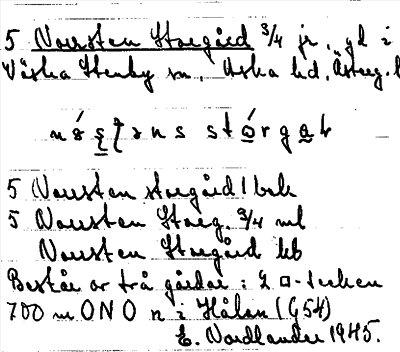 5 Norrsten Storgård 3/4 jr, gd i
Västra Stenby sn, Aska hd, Österg. l
5 Norrsten storgård 1 bek
5 Norrsten Storg. 3/4 ml
Norrsten Storgård kb
Består av två gårdar: 2 □-tecken
700 m ONO n i Hålan (G54)
E. Nordlander 1945.